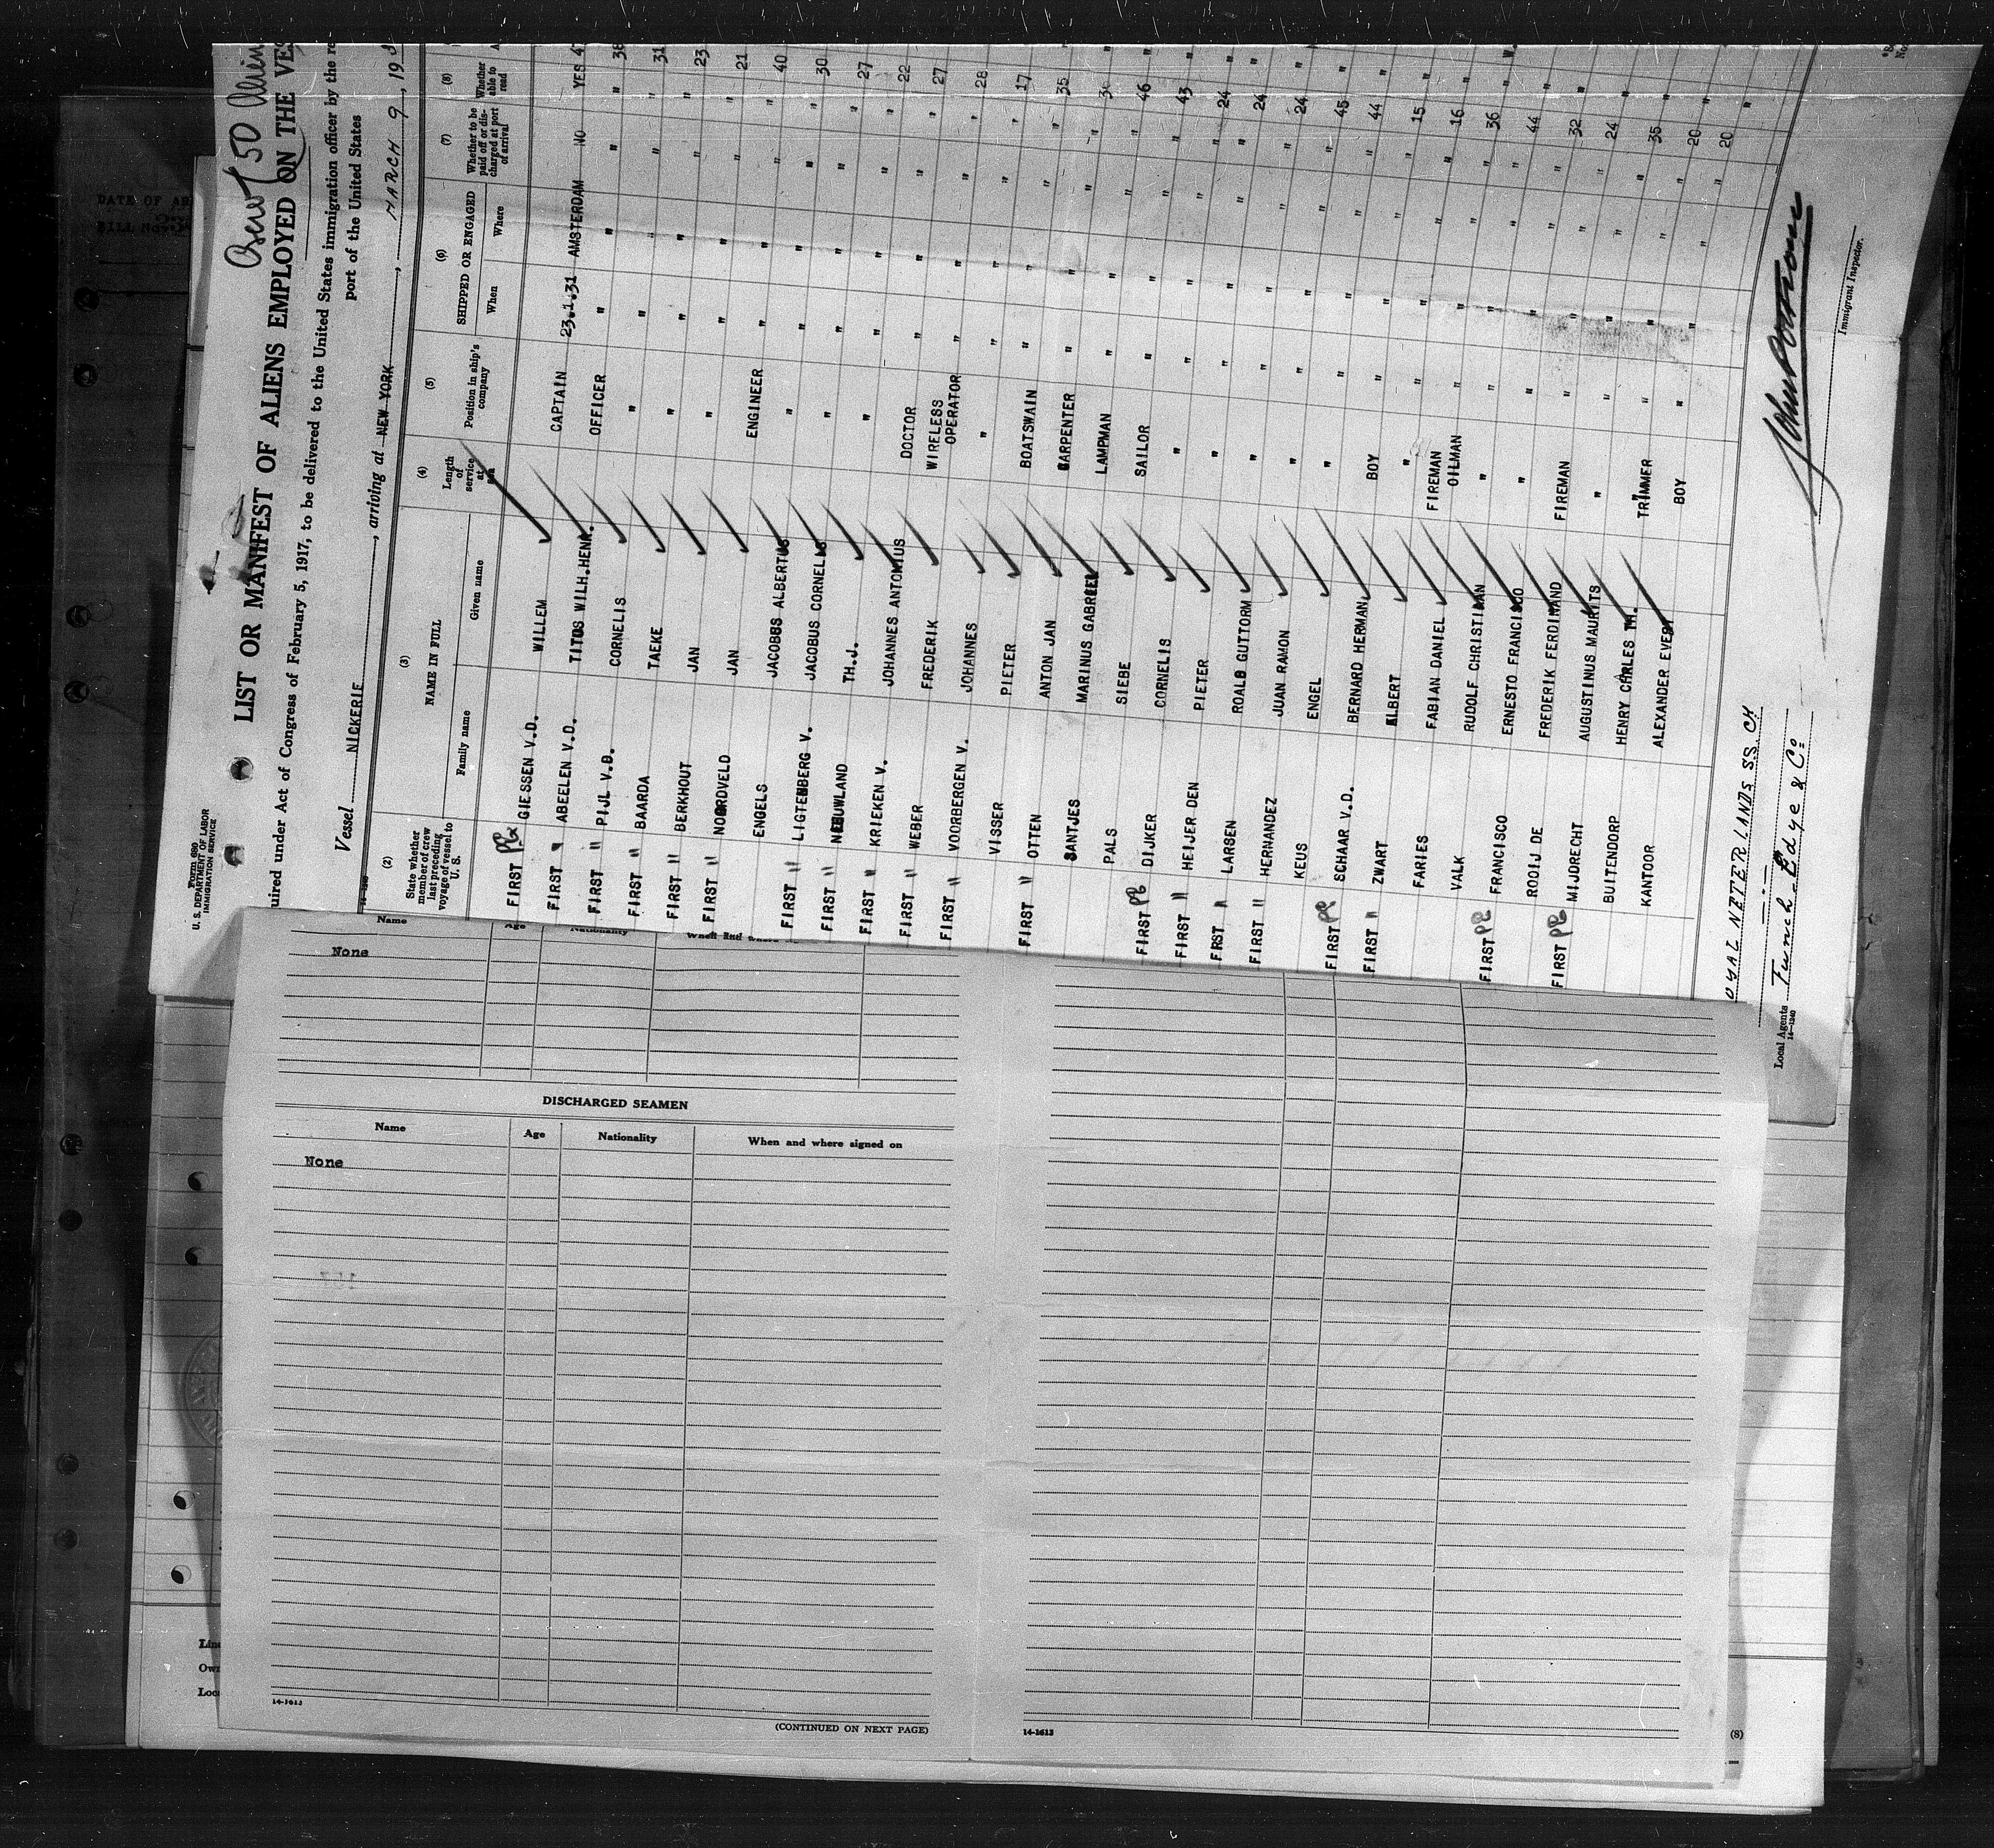 Form 680
U. S. DEPARTMENT OF LABOR
IMMIGRATION SERVICE
50
LIST OR MANIFEST OF ALIENS EMPLOYED ON THE VES
uired under Act of Congress of February 5, 1917, to be delivered to the United States immigration officer by the re
port of the United States
Vessel NICKERIE, arriving at NEW YORK, MARCH 9, 193
(2) State whether member of crew last preceding voyage of vessel to U. S.
(3) NAME IN FULL
Family name
Given name
(4) Length of service at sea
(5) Position in ship's company
(6) SHIPPED OR ENGAGED
When
Where
(7) Whether to be paid off or discharged at port of arrival
(8) Whether able to read
FIRST GIESSEN V.D. WILLEM CAPTAIN 23.1.31 AMSTERDAM NO YES 47
FIRST " ABEELEN V.D. TITUS WILH.HENR. OFFICER " " " " 38
FIRST " PIJL V.D. CORNELIS " " " " " 31
FIRST " BAARDA TAEKE " " " " " 23
FIRST " BERKHOUT JAN " " " " " 21
FIRST " NOORDVELD JAN ENGINEER " " " " 40
ENGELS JACOBUS ALBERTUS " " " " " 30
FIRST " LIGTENBERG V. JACOBUS CORNELIS " " " " " 27
FIRST " NIEUWLAND TH.J. " " " " " 22
FIRST " KRIEKEN V. JOHANNES ANTONIUS DOCTOR " " " " 27
FIRST " WEBER FREDERIK WIRELESS OPERATOR " " " " 28
FIRST " VOORBERGEN V. JOHANNES " " " " " 17
VISSER PIETER BOATSWAIN " " " " 35
FIRST " OTTEN ANTON JAN CARPENTER " " " "
SANTJES MARINUS GABRIEL LAMPMAN " " " " 46
PALS SIEBE SAILOR " " " " 43
FIRST DIJKER CORNELIS " " " " " 24
FIRST " HEIJER DEN PIETER " " " " " 24
FRST " LARSEN ROALD GUTTORM " " " " " 24
FIRST " HERNANDEZ JUAN RAMON " " " " " 45
KEUS ENGEL " " " " " 44
FIRST SCHAAR V.D. BERNARD HERMAN BOY " " " " 15
FIRST " ZWART ALBERT " " " " " 16
FARIES FABIAN DANIEL FIREMAN OILMAN " " " " 36
VALK RUDOLF CHRISTIAAN " " " " " 44
FIRST FRANCISCO ERNESTO FRANCISCO " " " " " 32
ROOIJ DE FREDERIK FERDINAND FIREMAN " " " " 24
FIRST MIJDRECHT AUGUSTINUS MAURITS " " " " " 35
BUITENDORP HENRY CHARLES TH. TRIMMER " " " " 20
KANTOOR ALEXANDER EVERT BOY " " " " 20
OYAL NETERLANDS S.S. Cy
Local Agents Funch Edye & Co
14-1240
Immigrant Inspector.
DATE OF AR
Name
Age
Nationality
When and where
None
DISCHARGED SEAMEN
Name Age Nationality When and where signed on
None
14-1613
(CONTINUED ON NEXT PAGE)
14-1613
(8)
Line
Own
Loca